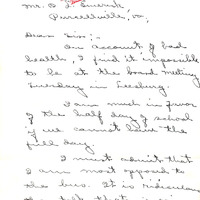 Mr. O. L. Emerick
Purcellville, Va.
Dear Sir:-
On account of bad
health, I find it impossible
to be at the board meeting
Tuesday in Leesburg.
I am much in favor
of the half day of school
if we cannot have the
full day.
I must admit that
I am most opposed to
the bus. It is ridiculous